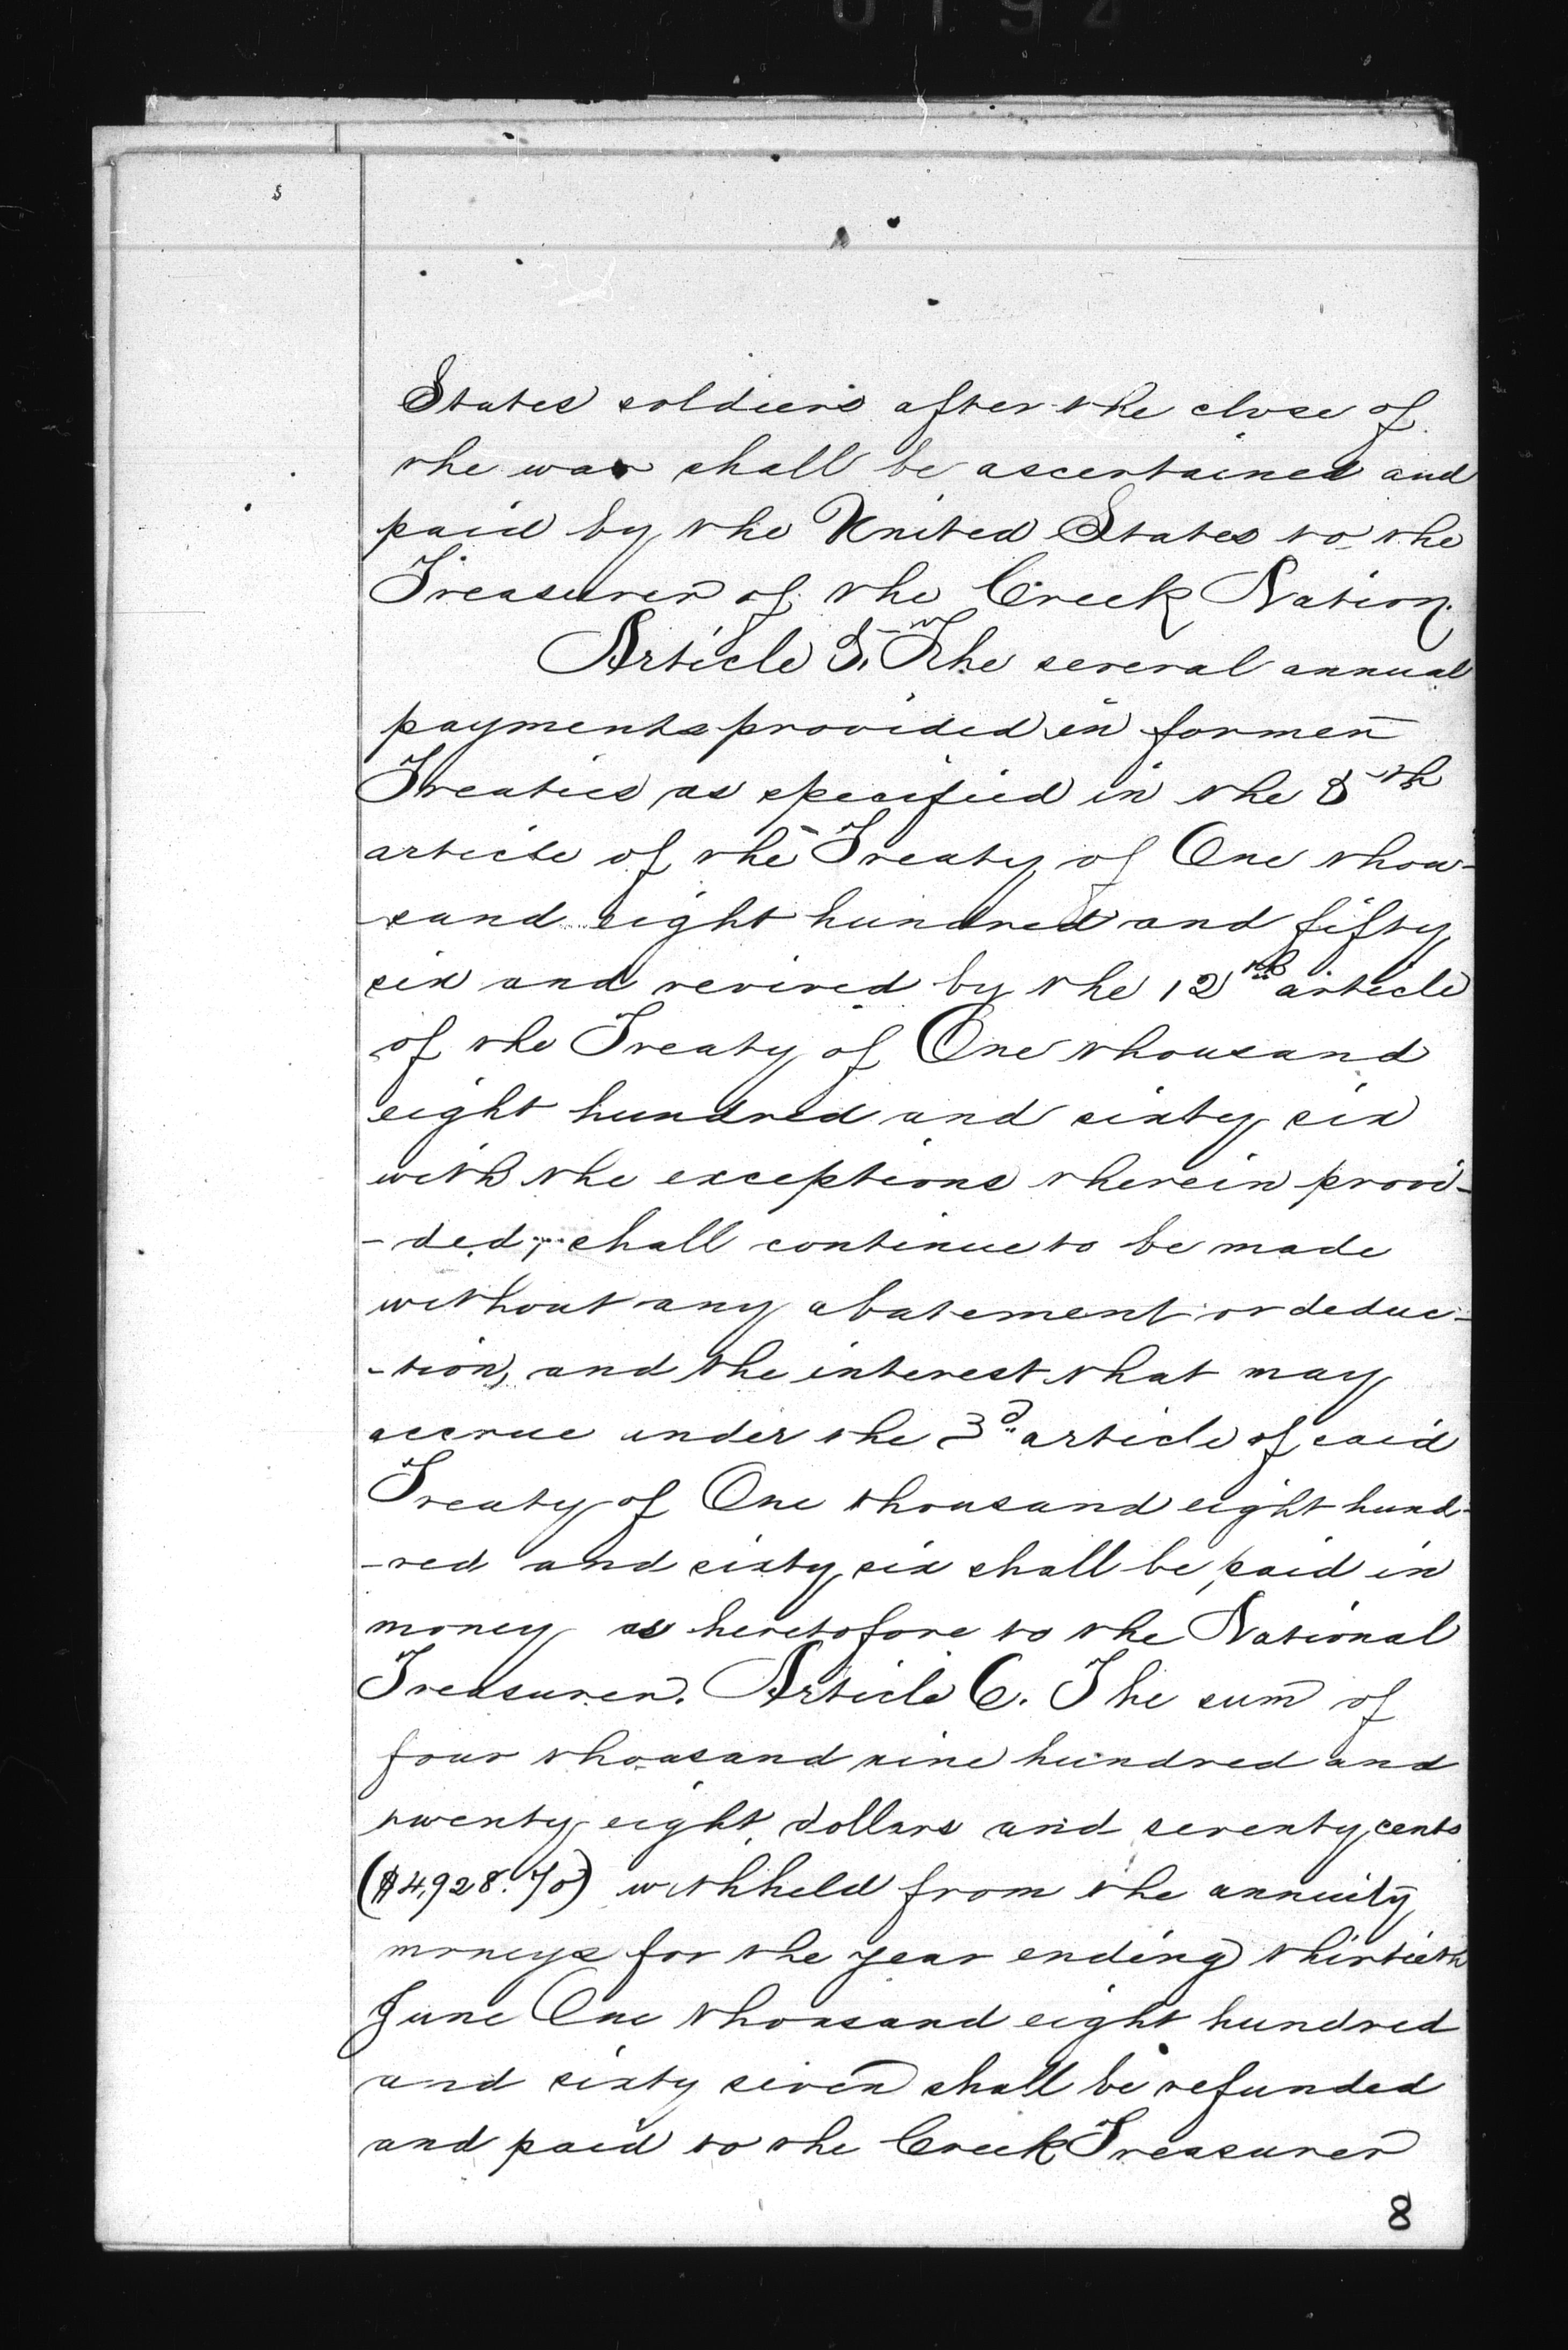 States soldiers after the close of
the war shall be ascertained and
paid by the United States to the
Treasurer of the Creek Nation.
Article 5. The several annual
payments provided in former
Treaties as specified in the 5th
article of the Treaty of One thou-
sand eight hundred and fifty
six and revived by the 12th article
of the Treaty of One thousand
eight hundred and sixty six
with the exceptions therein provi-
-ded, shall continue to be made
without any abatement or deduc-
-tion, and the interest that may
accrue under the 3d article of said
Treaty of One thousand eight hund-
-red and sixty six shall be paid in
money as heretofore to the National
Treasurer. Article 6. The sum of
four thousand nine hundred and
twenty eight dollars and seventy cents
($4,928.70) withheld from the annuity
moneys for the year ending thirtieth
June One thousand eight hundred
and sixty seven shall be refunded
and paid to the Creek Treasurer
8